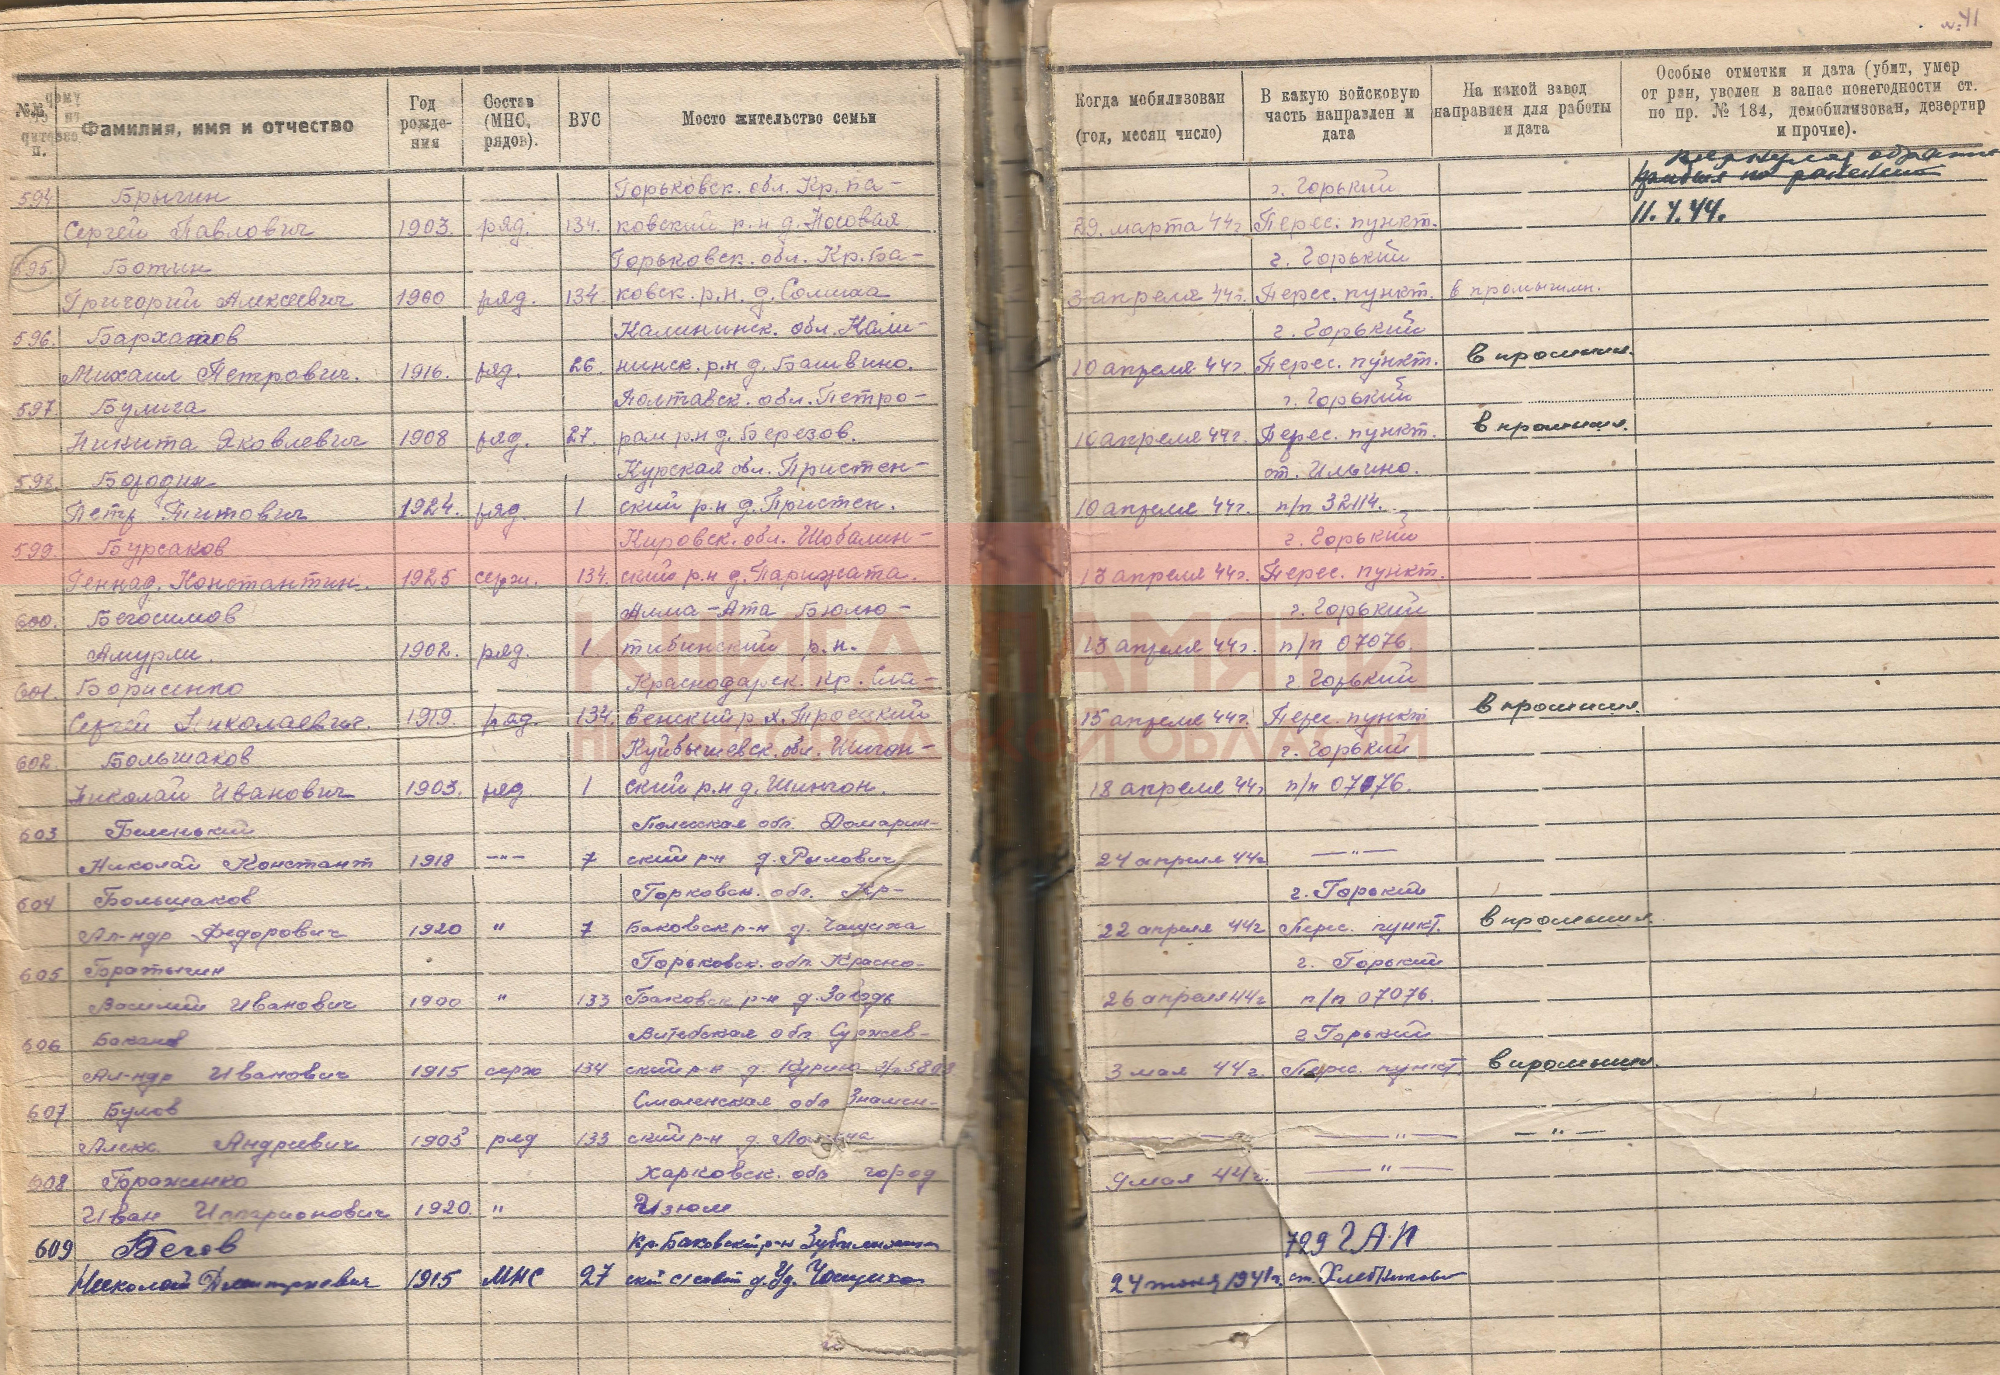 № 41
№№ п.
Фамилия, имя и отчество
Год рожде-ния
Состав (МНС, рядов).
ВУС
Место жительство семьи
Когда мобилизован (год, месяц число)
В какую войсковую часть направлен и дата
На какой завод направлен для работы и дата
Особые отметки и дата (убит, умер от ран, уволен в запас понегодности ст. по пр. № 184, демобилизован, дезертир и прочие).
594 Брыгин Горьковск. обл. Кр. ба- г. Горький
Сергей Павлович 1903. ряд. 134. ковский р.н д. Носовая 29. марта 44г. Перес. пункт. 11.4.44.
595. Ботин Горьковск. обл. Кр. Ба- г. Горький
Григорий Алексеевич 1900 ряд. 134 ковск. р.н. д. 3 апреля 44г. Перес. пункт. в промышлн.
596. Бархатов Калининск. обл. Кали- г. Горький
Михаил Петрович. 1916. ряд. 26. нинск. р.н д. Башвино. 10 апреля 44г. Перес. пункт. в промышл.
597. Булига Полтавск. обл. Петро- г. Горький
Никита Яковлевич 1908 ряд. 27. р.н д. Березов. 10 апреля 44г. Перес. пункт. в промышл.
598. Бородин Курская обл. Пристен- ст. Ильино.
Петр Титович 1924. ряд. 1 ский р.н д. Пристен. 10 апреля 44г. п/п 32114.
599 Бурсаков Кировск. обл. Шабалин- г. Горький
Геннад. Константин. 1925 серж. 134. ский р.н д. Парижата. 13 апреля 44г. Перес. пункт.
600. Бегосимов Алма-Ата Бюлю- г. Горький
Амурли. 1902. ряд. 1. тибинский р.н. 13 апреля 44г. п/п 07076.
601. Борисенко Краснодарск. кр. Сла- г. Горький
Сергей Николаевич. 1919. ряд. 134. венский р.н. Троецкий 15 апреля 44г. Перес. пункт в промышл.
602. Большаков Куйбышевск. обл. Шигон- г. Горький
Николай Иванович 1903. ряд 1 ский р.н д. Шигон. 18 апреля 44г п/п 07076.
603 Беленький Полесская обл.
Николай Констант 1918 —"— 7 ский р-н д. Рилович 24 апреля 44г —"—
604 Большаков Горковск. обл. Кр- г. Горький
Ал-ндр Федорович 1920 " 7 Баковск р-н д. Чащиха 22 апреля 44г Перес. пункт. в промышл.
605 Горьковск. обл. Красно- г. Горький
Василий Иванович 1900 " 133 Баковск р-н д. Заводь 26 апреля 44г п/п 07076.
606 Баканов Витебская обл. Суржев- г. Горький
Ал-ндр Иванович 1915 серж 134 ский р-н д. 3 мая 44г. Перес. пункт. в промышл.
607 Булов Смоленская обл Знамен-
Алекс. Андреевич 1905 ряд 133 ский р-н д. — — —"— —"—
608 Гораженко Харковск. обл город —"—
Иван Илларионович 1920. " Изюм 9 мая 44г.
609 Бегов Кр-Баковский р-н 799 ГАП
Николай Дмитриевич 1915 МНС 27 ский с/совет д. Чащиха 24 июня 1941г. ст. Хлебниково
КНИГА ПАМЯТИ
НИЖЕГОРОДСКОЙ ОБЛАСТИ